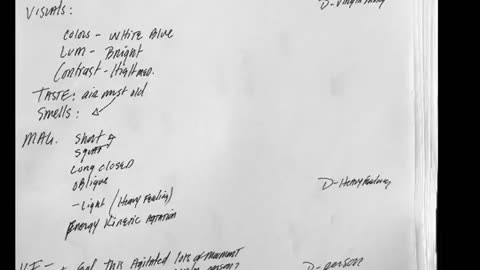 VISUALS:
D-Virgin Mary
Colors - White Blue
Lum - Bright
Contrast - High med.
TASTE: air must old
Smells:
MAG. Short
squat
Long closed
oblique
- Light (Heavy Feeling)
D-Heavy Feeling
Energy Kinetic
this Agitated lots of
D-person
person?